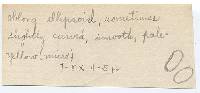 oblong ellipsoid, sometimes
slightly curved, smooth, pale-
yellow, micros
7-9 x 4-5 μ